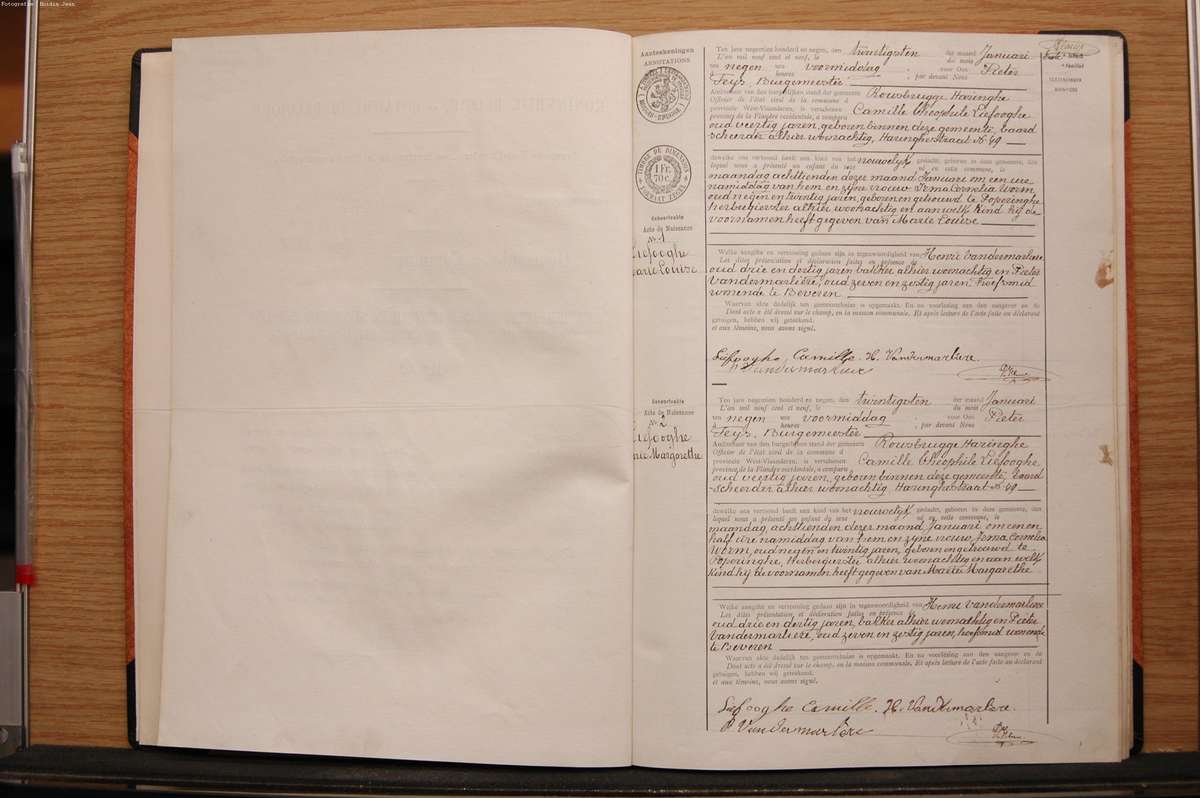 Fotografie: Houdin Jean
Aanteekeningen
ANNOTATIONS
TIMBRE DE DIMENSION
1 Fr. 70 c.
Geboorteakte
Acte de Naissance
N. 1
Liefooghe
Marie Louise
Ten jare negentien honderd en negen, den twintigsten der maand Januari
L'an mil neuf cent et neuf, le du mois
ten negen ure voormiddag voor Ons Pieter
à heures , par devant Nous
Feys, Burgemeester
Ambtenaar van den burgerlijken stand der gemeente Rousbrugge Haringhe
Officier de l'état civil de la commune d
provincie West-Vlaanderen, is verschenen Camille Théophile Liefooghe
province de la Flandre occidentale, a comparu
oud veertig jaren, geboren binnen deze gemeente, baard
scheerder alhier woonachtig, Haringhe straat N. 49
dewelke ons vertoond heeft een kind van het vrouwelijk geslacht, geboren in deze gemeente, den
lequel nous a présenté un enfant du sexe né en cette commune, le
maandag achttienden dezer maand Januari om een ure
namiddag van hem en zijne vrouw Irma Cornelia Worm,
oud negen en twintig jaren, geboren en getrouwd te Poperinghe
herbergierster alhier woonachtig en aan welk kind hij de
voornamen heeft gegeven van Marie Louise
Welke aangifte en vertooning gedaan zijn in tegenwoordigheid van Henri Vandermarliere
Les dites présentation et déclaration faites en présence de
oud drie en dertig jaren bakker alhier woonachtig en Pieter
Vandermarliere, oud zeven en zestig jaren, hoefsmid
wonende te Beveren
Waarvan akte dadelijk ten gemeentehuize is opgemaakt. En na voorlezing aan den aangever en de
Dont acte a été dressé sur le champ, en la maison communale. Et après lecture de l'acte faite au déclarant
getuigen, hebben wij geteekend.
et aux témoins, nous avons signé.
Liefooghe Camille. H. Vandermarliere.
P Vandermarliere
Geboorteakte
Acte de Naissance
N. 2
Liefooghe
Marie Margarethe
Ten jare negentien honderd en negen, den twintigsten der maand Januari
L'an mil neuf cent et neuf, le du mois
ten negen ure voormiddag voor Ons Pieter
à heures , par devant Nous
Feys, Burgemeester
Ambtenaar van den burgerlijken stand der gemeente Rousbrugge Haringhe
Officier de l'état civil de la commune d
provincie West-Vlaanderen, is verschenen Camille Théophile Liefooghe
province de la Flandre occidentale, a comparu
oud veertig jaren, geboren binnen deze gemeente, baard
-scheerder alhier woonachtig Haringhestraat N. 49
dewelke ons vertoond heeft een kind van het vrouwelijk geslacht, geboren in deze gemeente, den
lequel nous a présenté un enfant du sexe né en cette commune, le
maandag, achttienden dezer maand Januari, om een en
half ure namiddag van hem en zijne vrouw, Irma Cornelia
Worm, oud negen en twintig jaren, geboren en getrouwd te
Poperinghe, Herbergierster alhier woonachtig en aan welk
kind hij de voornamen heeft gegeven van Marie Margarethe
Welke aangifte en vertooning gedaan zijn in tegenwoordigheid van Henri Vandermarliere
Les dites présentation et déclaration faites en présence de
oud drie en dertig jaren, bakker alhier woonachtig en Pieter
Vandermarliere, oud zeven en zestig jaren, hoefsmid wonende
te Beveren
Waarvan akte dadelijk ten gemeentehuize is opgemaakt. En na voorlezing aan den aangever en de
Dont acte a été dressé sur le champ, en la maison communale. Et après lecture de l'acte faite au déclarant
getuigen, hebben wij geteekend.
et aux témoins, nous avons signé.
Liefooghe Camille. H. Vandermarliere
P Vandermarliere